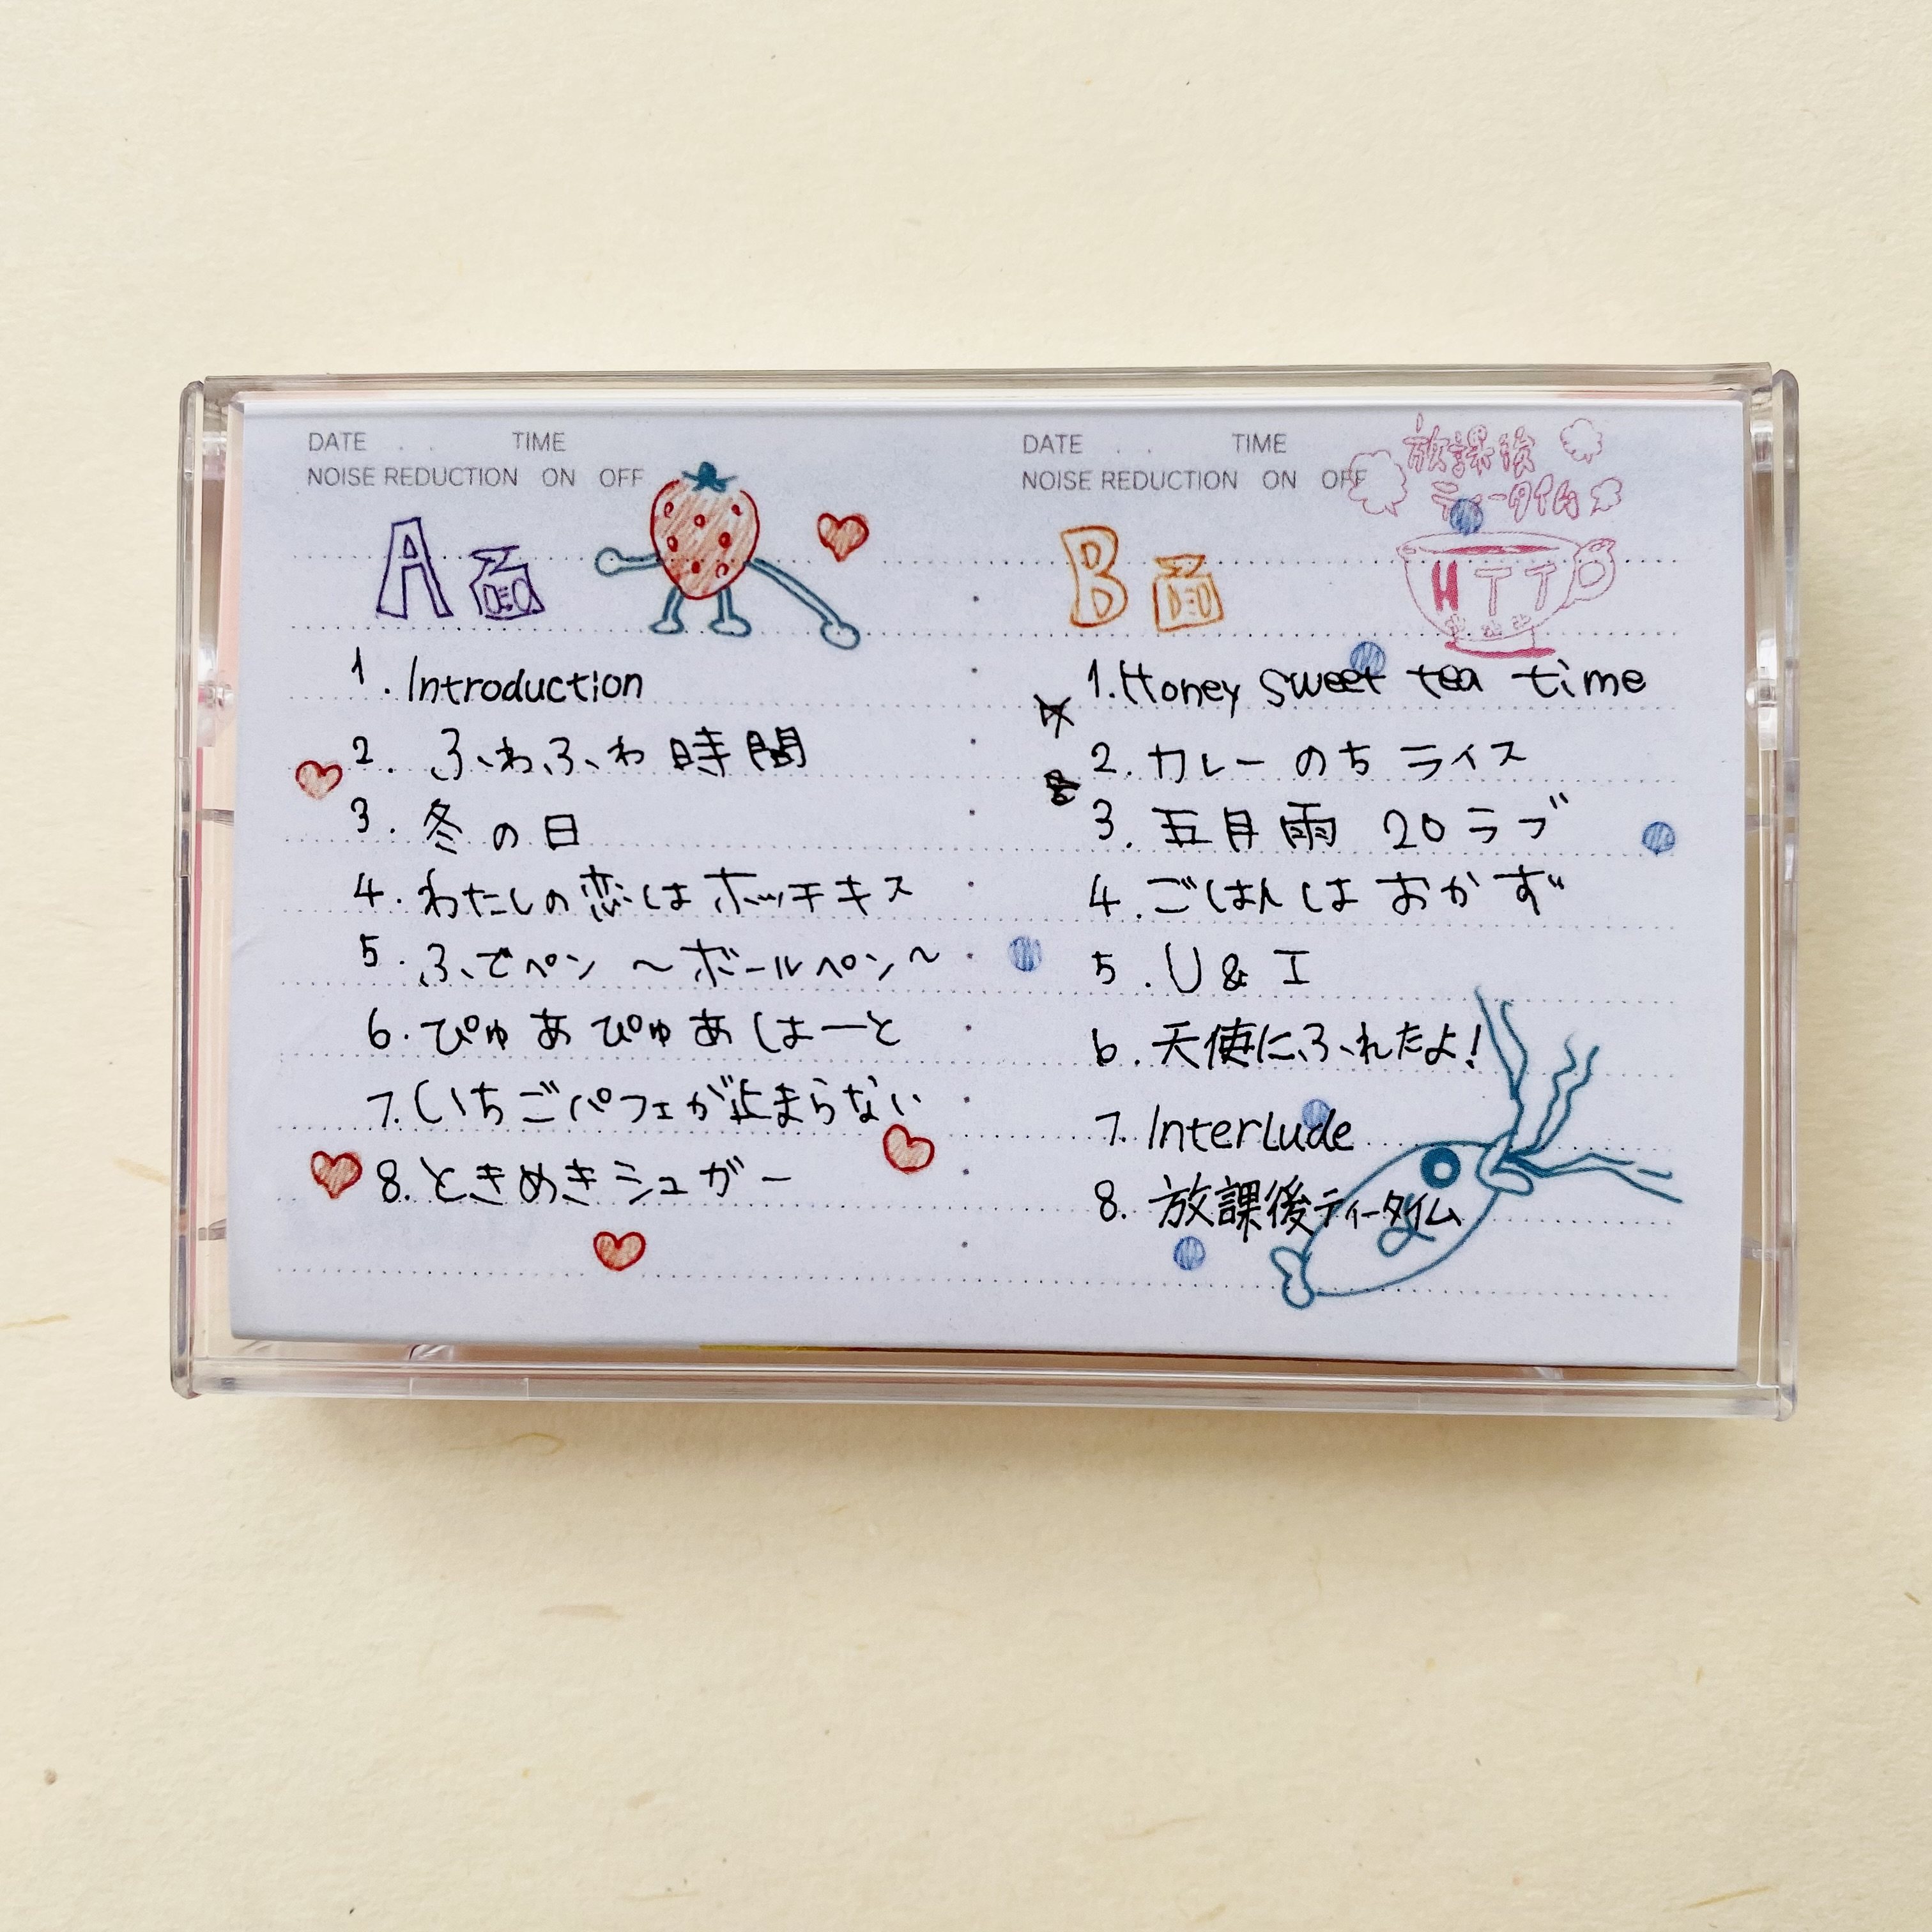 DATE . . TIME
NOISE REDUCTION ON OFF
A面
1. Introduction
2. ふわふわ時間
3. 冬の日
4. わたしの恋はホッチキス
5. ふでペン ～ボールペン～
6. ぴゅあぴゅあはーと
7. いちごパフェが止まらない
8. ときめきシュガー
DATE . . TIME
NOISE REDUCTION ON OFF
放課後
ティータイム
HTT
B面
1. Honey sweet tea time
2. カレーのちライス
3. 五月雨 20 ラブ
4. ごはんはおかず
5. U & I
6. 天使にふれたよ!
7. Interlude
8. 放課後ティータイム